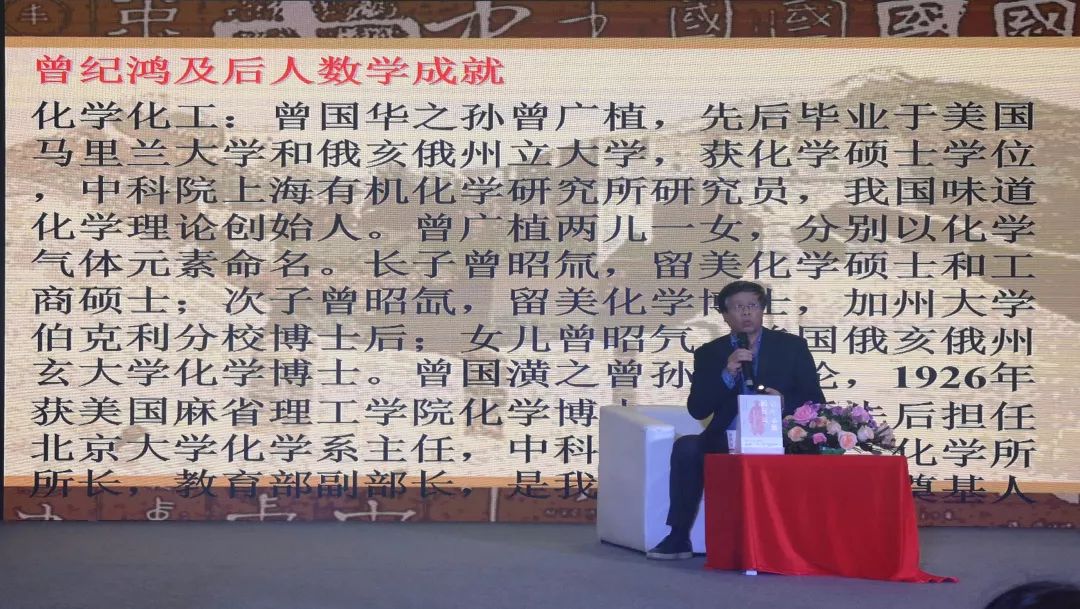 曾纪鸿及后人数学成就
化学化工：曾国华之孙曾广植，先后毕业于美国
马里兰大学和俄亥俄州立大学，获化学硕士学位
，中科院上海有机化学研究所研究员，我国味道
化学理论创始人。曾广植两儿一女，分别以化学
气体元素命名。长子曾昭氚，留美化学硕士和工
商硕士；次子曾昭氙，留美化学博士，加州大学
伯克利分校博士后；女儿曾昭 国俄亥俄州
玄大学化学博士。曾国潢之曾孙 ，1926年
获美国麻省理工学院化学博 后担任
北京大学化学系主任，中科 化学所
所长，教育部副部长，是我 奠基人